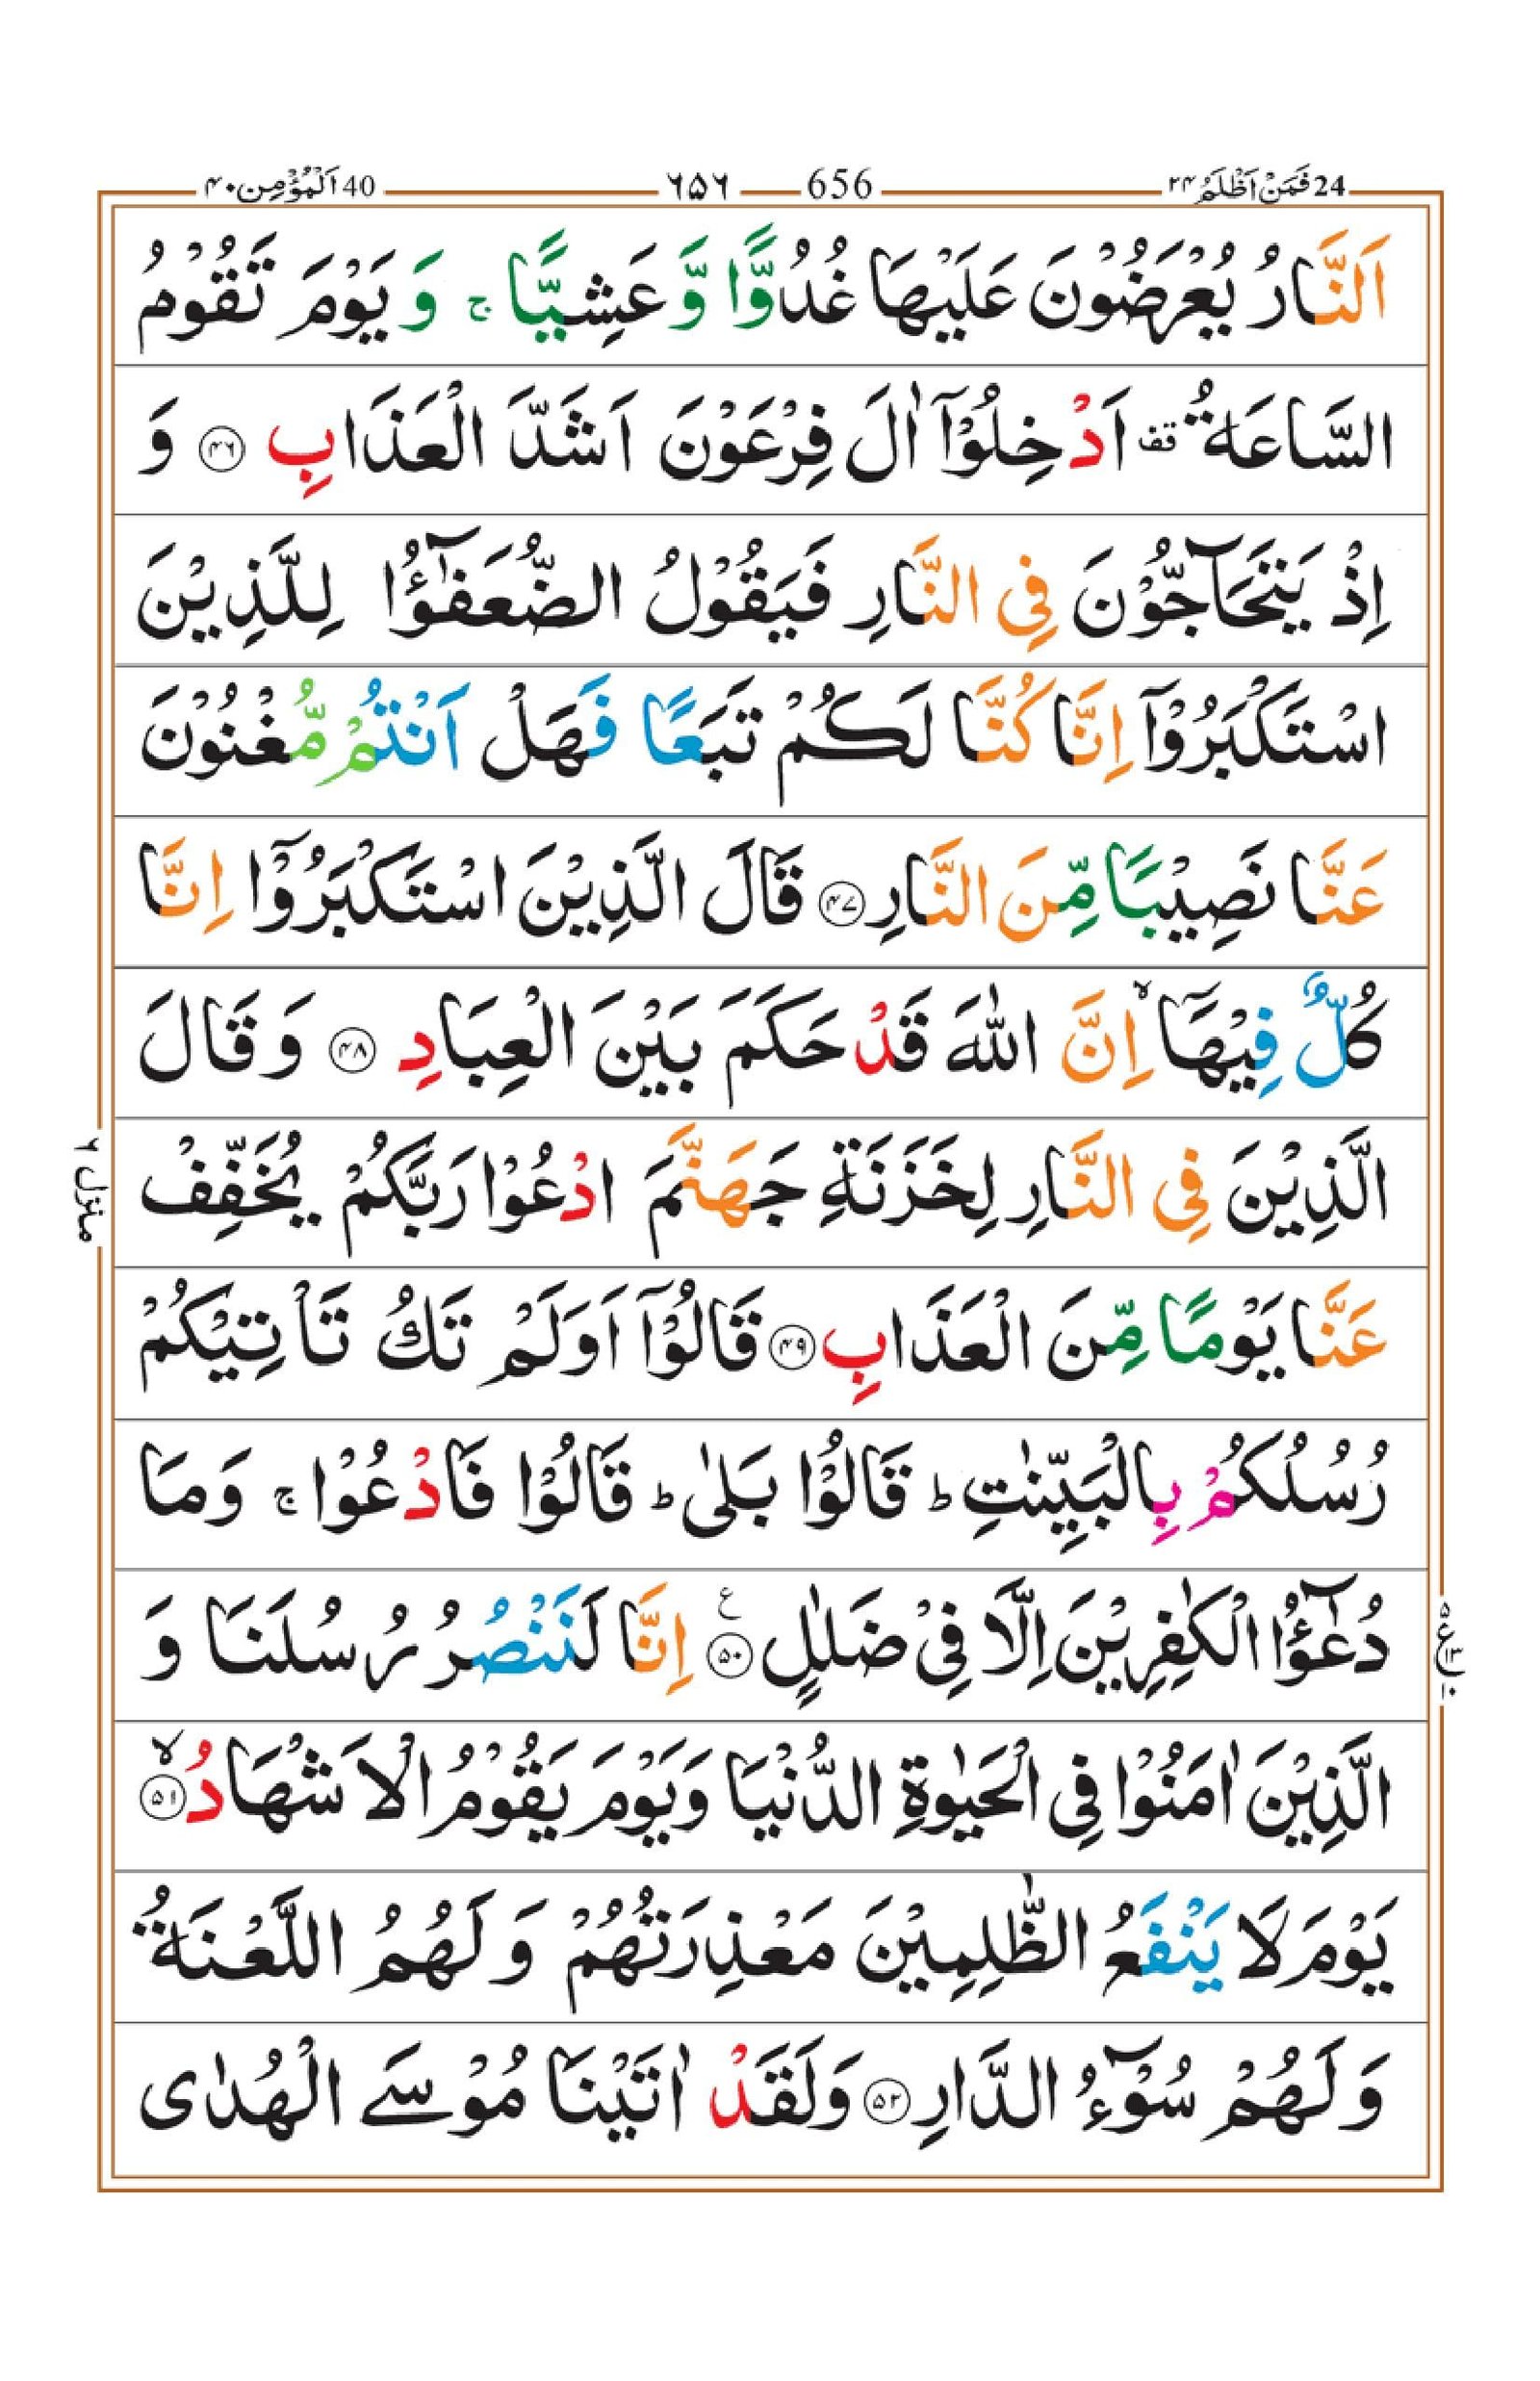 24 فَمَنْ اَظْلَمُ ۲۴ 656 ۶۵۶ 40 اَلْمُؤْمِن ۴۰
اَلنَّارُ يُعْرَضُوْنَ عَلَيْهَا غُدُوًّا وَّ عَشِيًّا ج وَ يَوْمَ تَقُوْمُ
السَّاعَةُ قف اَدْخِلُوْۤا اٰلَ فِرْعَوْنَ اَشَدَّ الْعَذَابِ ۴۶ وَ
اِذْ يَتَحَآجُّوْنَ فِى النَّارِ فَيَقُوْلُ الضُّعَفٰٓؤُا لِلَّذِيْنَ
اسْتَكْبَرُوْۤا اِنَّا كُنَّا لَكُمْ تَبَعًا فَهَلْ اَنْتُمْ مُّغْنُوْنَ
عَنَّا نَصِيْبًا مِّنَ النَّارِ ۴۷ قَالَ الَّذِيْنَ اسْتَكْبَرُوْۤا اِنَّا
كُلٌّ فِيْهَاۤ ۙ اِنَّ اللّٰهَ قَدْ حَكَمَ بَيْنَ الْعِبَادِ ۴۸ وَ قَالَ
الَّذِيْنَ فِى النَّارِ لِخَزَنَةِ جَهَنَّمَ ادْعُوْا رَبَّكُمْ يُخَفِّفْ
منزل ۶
عَنَّا يَوْمًا مِّنَ الْعَذَابِ ۴۹ قَالُوْۤا اَوَلَمْ تَكُ تَاْتِيْكُمْ
رُسُلُكُمْ بِالْبَيِّنٰتِ ط قَالُوْا بَلٰى ط قَالُوْا فَادْعُوْا ج وَمَا
دُعٰٓؤُا الْكٰفِرِيْنَ اِلَّا فِىْ ضَلٰلٍ ۵۰ ع اِنَّا لَنَنْصُرُ رُسُلَنَا وَ
۵ ع ۱۳ ۱۰
الَّذِيْنَ اٰمَنُوْا فِى الْحَيٰوةِ الدُّنْيَا وَيَوْمَ يَقُوْمُ الْاَشْهَادُ ۙ ۵۱
يَوْمَ لَا يَنْفَعُ الظّٰلِمِيْنَ مَعْذِرَتُهُمْ وَ لَهُمُ اللَّعْنَةُ
وَ لَهُمْ سُوْٓءُ الدَّارِ ۵۲ وَلَقَدْ اٰتَيْنَا مُوْسَے الْهُدٰى